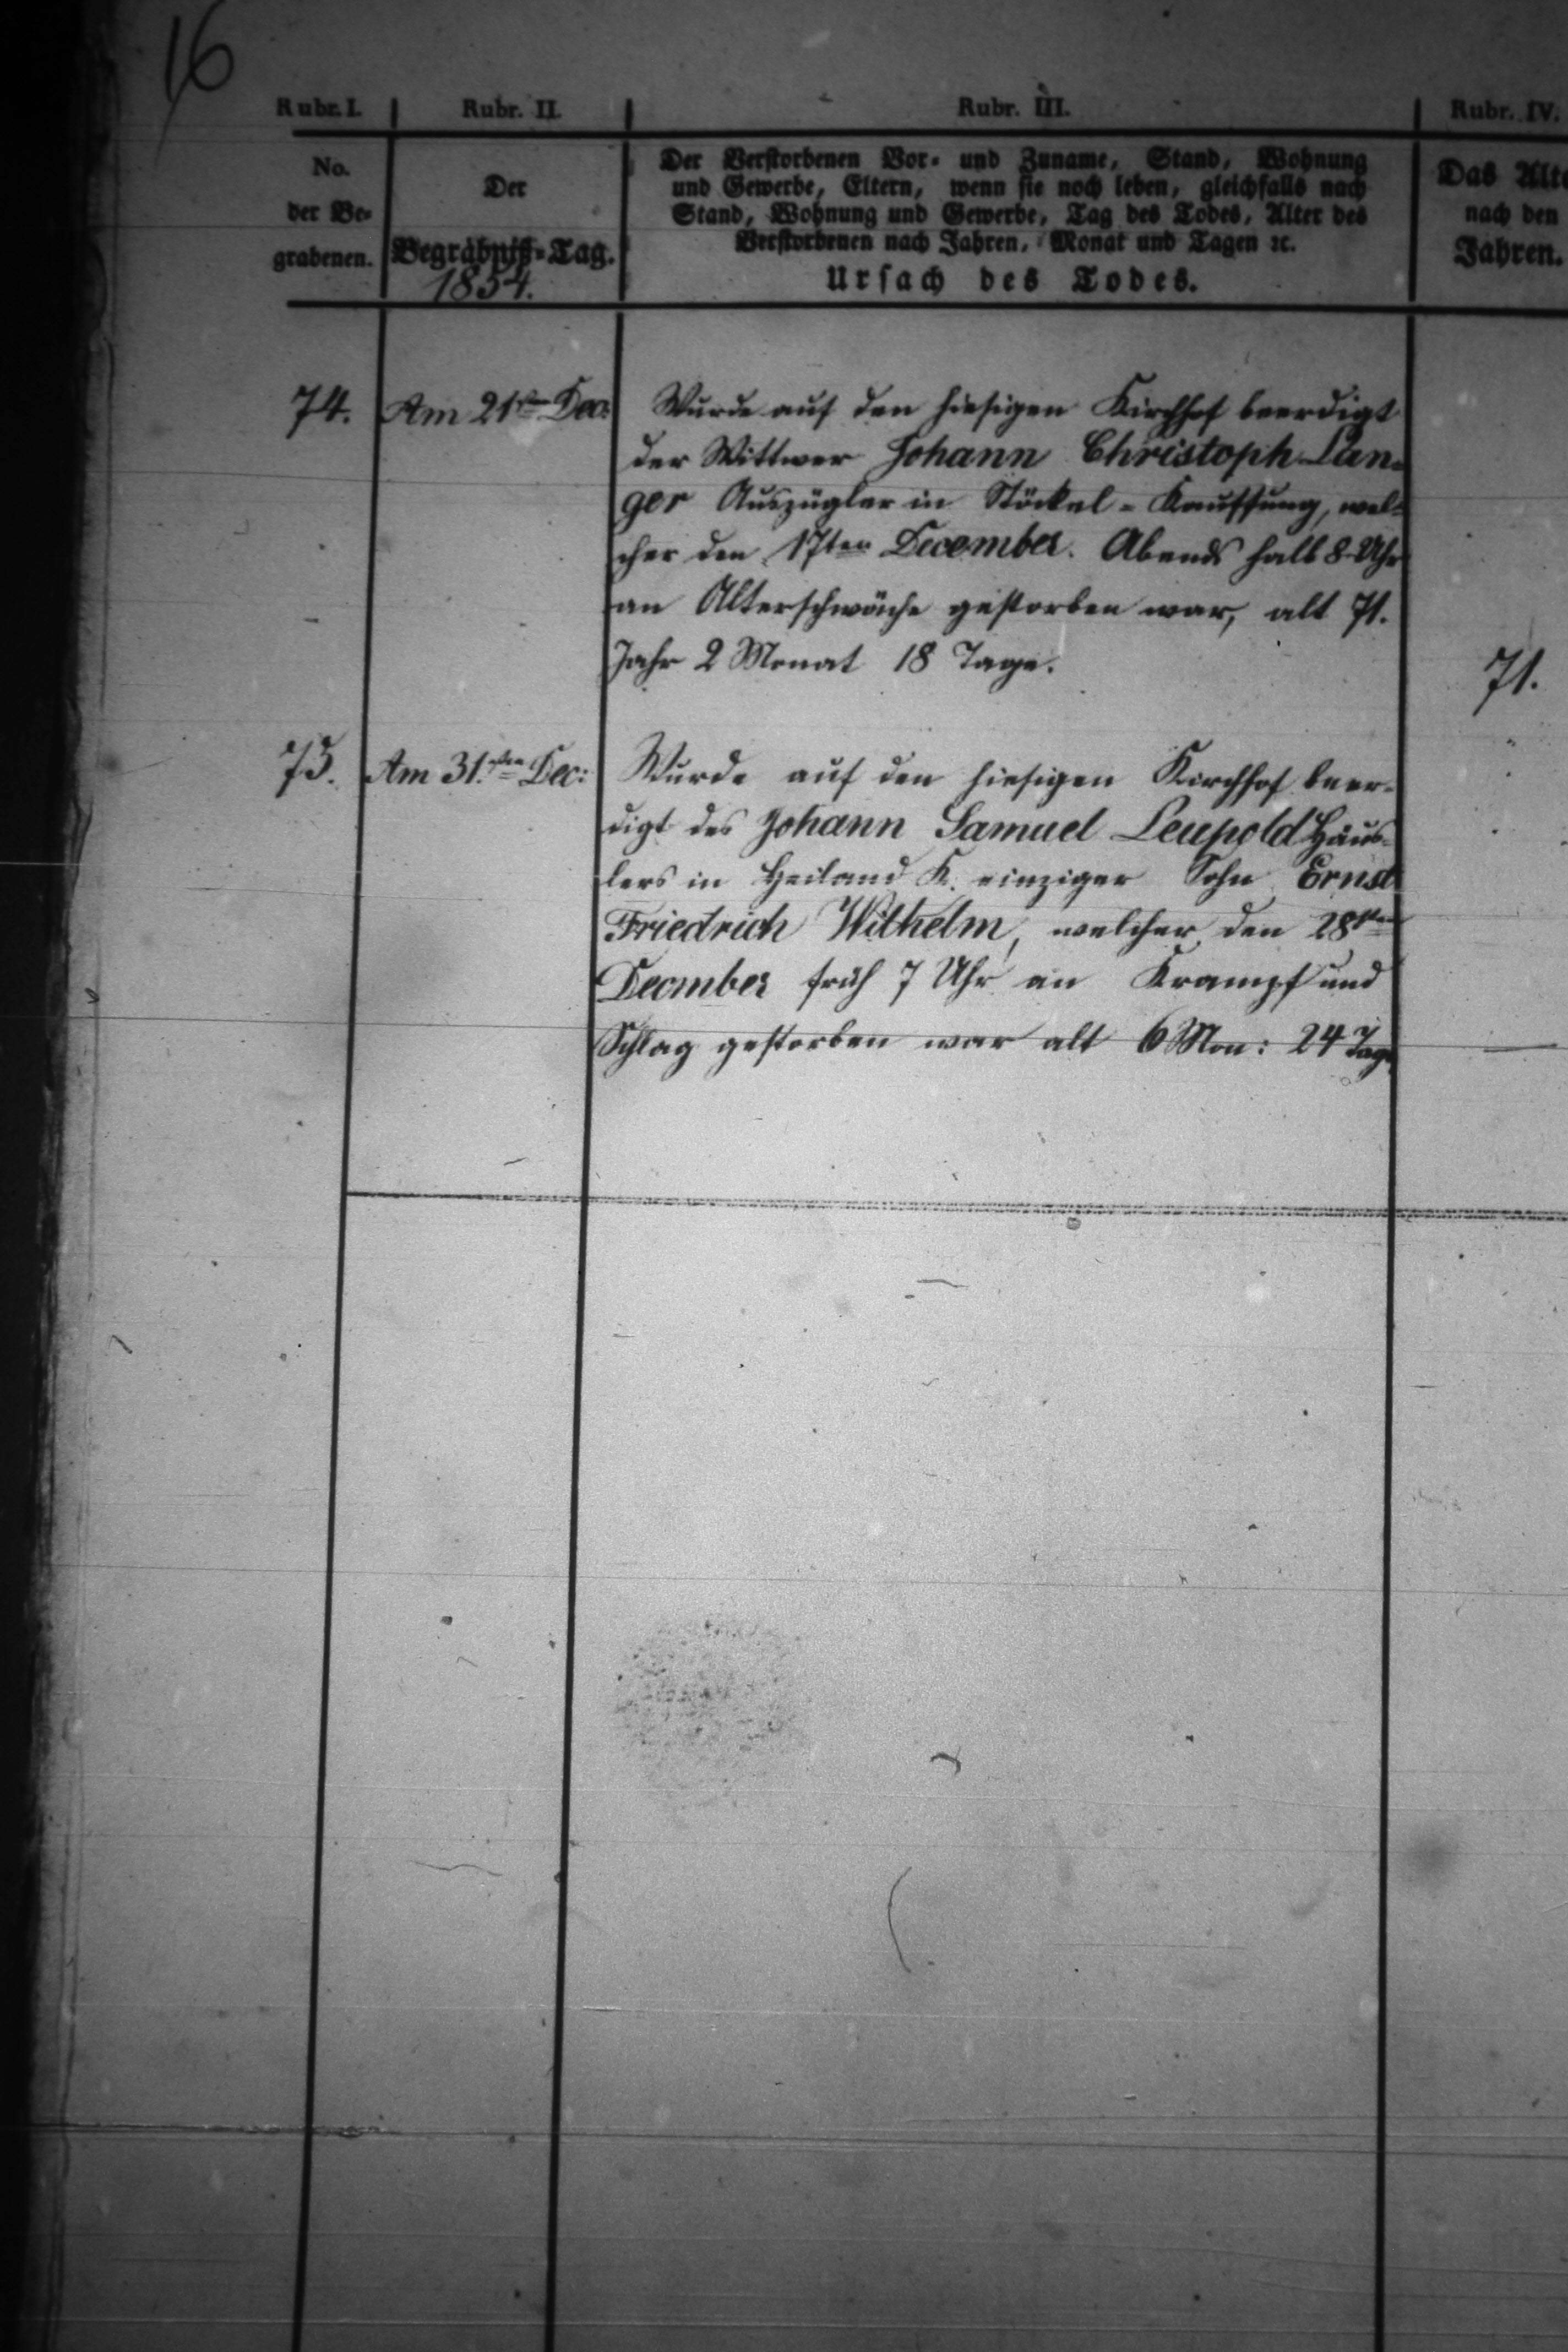 16
Rubr. I. Rubr. II. Rubr. III. Rubr. IV.
No.
der Be-
grabenen.
Der
Begräbniß-Tag.
1854.
Der Verstorbenen Vor- und Zuname, Stand, Wohnung
und Gewerbe, Eltern, wenn sie noch leben, gleichfalls nach
Stand, Wohnung und Gewerbe, Tag des Todes, Alter des
Verstorbenen nach Jahren, Monat und Tagen ꝛc.
Ursach des Todes.
Das Alte
nach den
Jahren.
74. Am 21sten Dec: Wurde auf den hiesigen Kirchhof beerdigt
der Wittwer Johann Christoph Lan-
ger Auszügler in Stöckel-Kauffung, wel-
cher den 17ten December. Abends halb 8 Uhr
an Alterschwäche gestorben war, alt 71.
Jahr 2 Monat 18 Tage. 71.
75. Am 31.sten Dec: Wurde auf den hiesigen Kirchhof beer-
digt des Johann Samuel Leupold Häus-
lers in Heiland K. einziger Sohn Ernst
Friedrich Wilhelm, welcher den 28sten
Decmber früh 7 Uhr an Krampf und
Schlag gestorben war alt 6 Mon: 24 Tage —